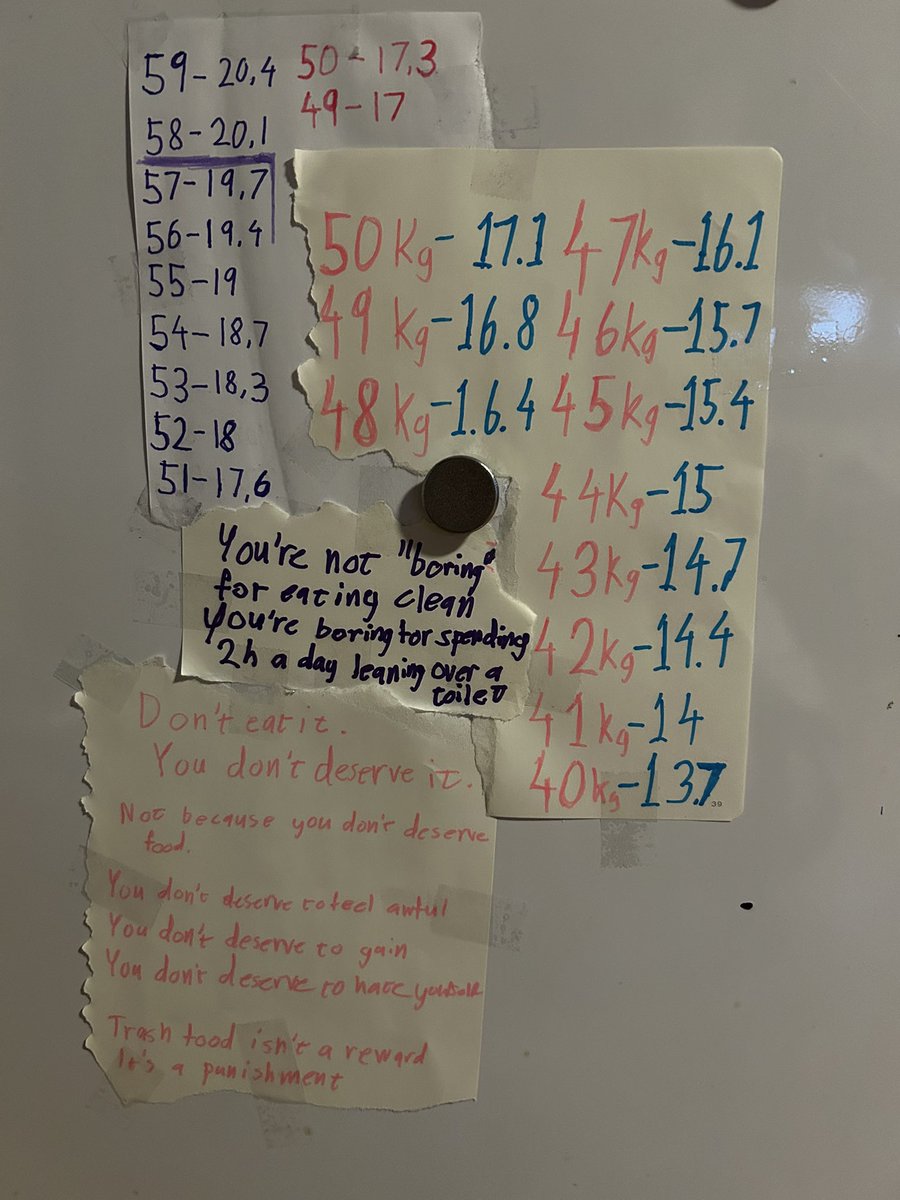 59-20,4
58-20,1
57-19,7
56-19,4
55-19
54-18,7
53-18,3
52-18
51-17,6
50-17,3
49-17
50 Kg-17.1
49 Kg-16.8
48 Kg-1.6.4
47kg-16.1
46kg-15.7
45kg-15.4
44Kg-15
43kg-14.7
42kg-14.4
41kg-14
40kg-13.7
39
You're not "boring"
for eating clean
You're boring for spending
2h a day leaning over a
toilet
Don't eat it.
You don't deserve it.
Not because you don't deserve
food.
You don't deserve to feel awful
You don't deserve to gain
You don't deserve to hate yourself
Trash food isn't a reward
It's a punishment